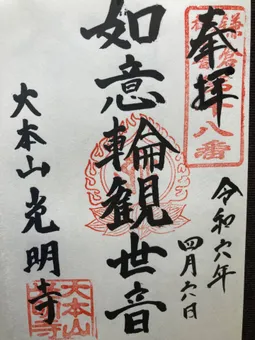 奉拝
鎌倉
第八番
令和六年
四月六日
如意輪観世音
大本山光明寺
大本山
光明寺